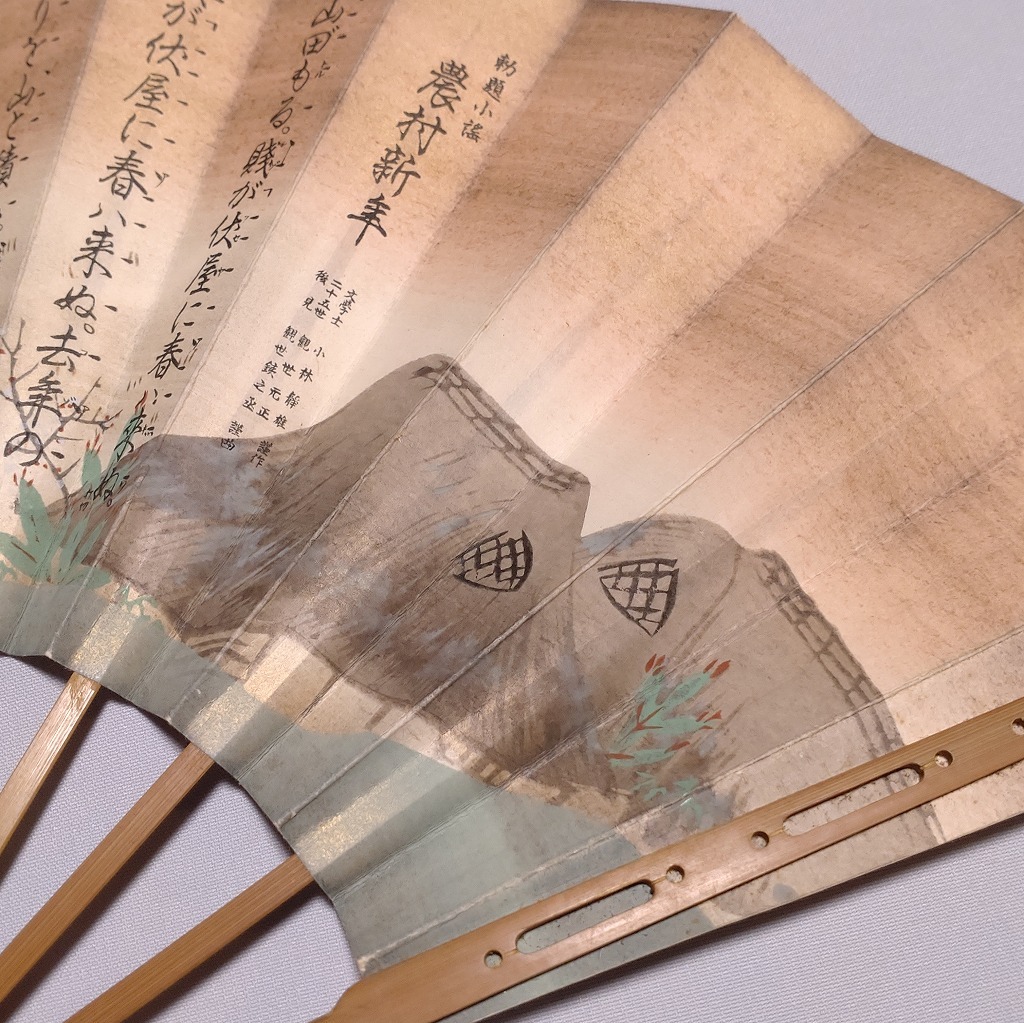 勅題小謡
農村新年
文學士 小林静雄 謹作
二十五世 観世元正
後見 観世銕之丞 謹節
山田もる。賤が伏屋に春ハ来ぬ。
が伏屋に春ハ来ぬ。去年の